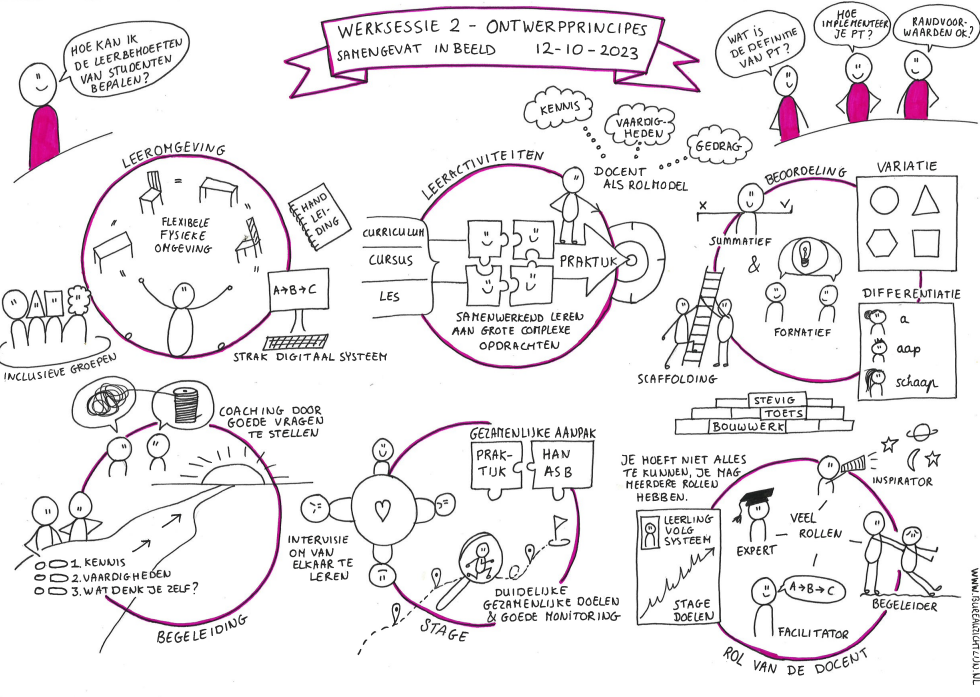 WERKSESSIE 2 - ONTWERPPRINCIPES
SAMENGEVAT IN BEELD 12-10-2023
HOE KAN IK
DE LEERBEHOEFTEN
VAN STUDENTEN
BEPALEN?
WAT IS
DE DEFINITIE
VAN PT?
HOE
IMPLEMENTEER
JE PT?
RANDVOOR-
WAARDEN OK?
LEEROMGEVING
FLEXIBELE
FYSIEKE
OMGEVING
HAND
LEI-
DING
A→B→C
STRAK DIGITAAL SYSTEEM
INCLUSIEVE GROEPEN
LEERACTIVITEITEN
KENNIS
VAARDIG-
HEDEN
GEDRAG
DOCENT
ALS ROLMODEL
CURRICULUM
CURSUS
LES
PRAKTIJK
SAMENWERKEND LEREN
AAN GROTE COMPLEXE
OPDRACHTEN
BEOORDELING
X V
SUMMATIEF
&
FORMATIEF
SCAFFOLDING
VARIATIE
DIFFERENTIATIE
a
aap
schaap
STEVIG
TOETS
BOUWWERK
COACHING DOOR
GOEDE VRAGEN
TE STELLEN
1. KENNIS
2. VAARDIGHEDEN
3. WAT DENK JE ZELF?
BEGELEIDING
GEZAMENLIJKE AANPAK
PRAK-
TIJK
HAN
ASB
INTERVISIE
OM VAN
ELKAAR TE
LEREN
DUIDELIJKE
GEZAMENLIJKE DOELEN
& GOEDE MONITORING
STAGE
JE HOEFT NIET ALLES
TE KUNNEN, JE MAG
MEERDERE ROLLEN
HEBBEN.
LEERLING
VOLG
SYSTEEM
STAGE
DOELEN
INSPIRATOR
EXPERT
VEEL
ROLLEN
A→B→C
FACILITATOR
BEGELEIDER
ROL VAN DE DOCENT
WWW.BUREAUZICHTZIN.NL